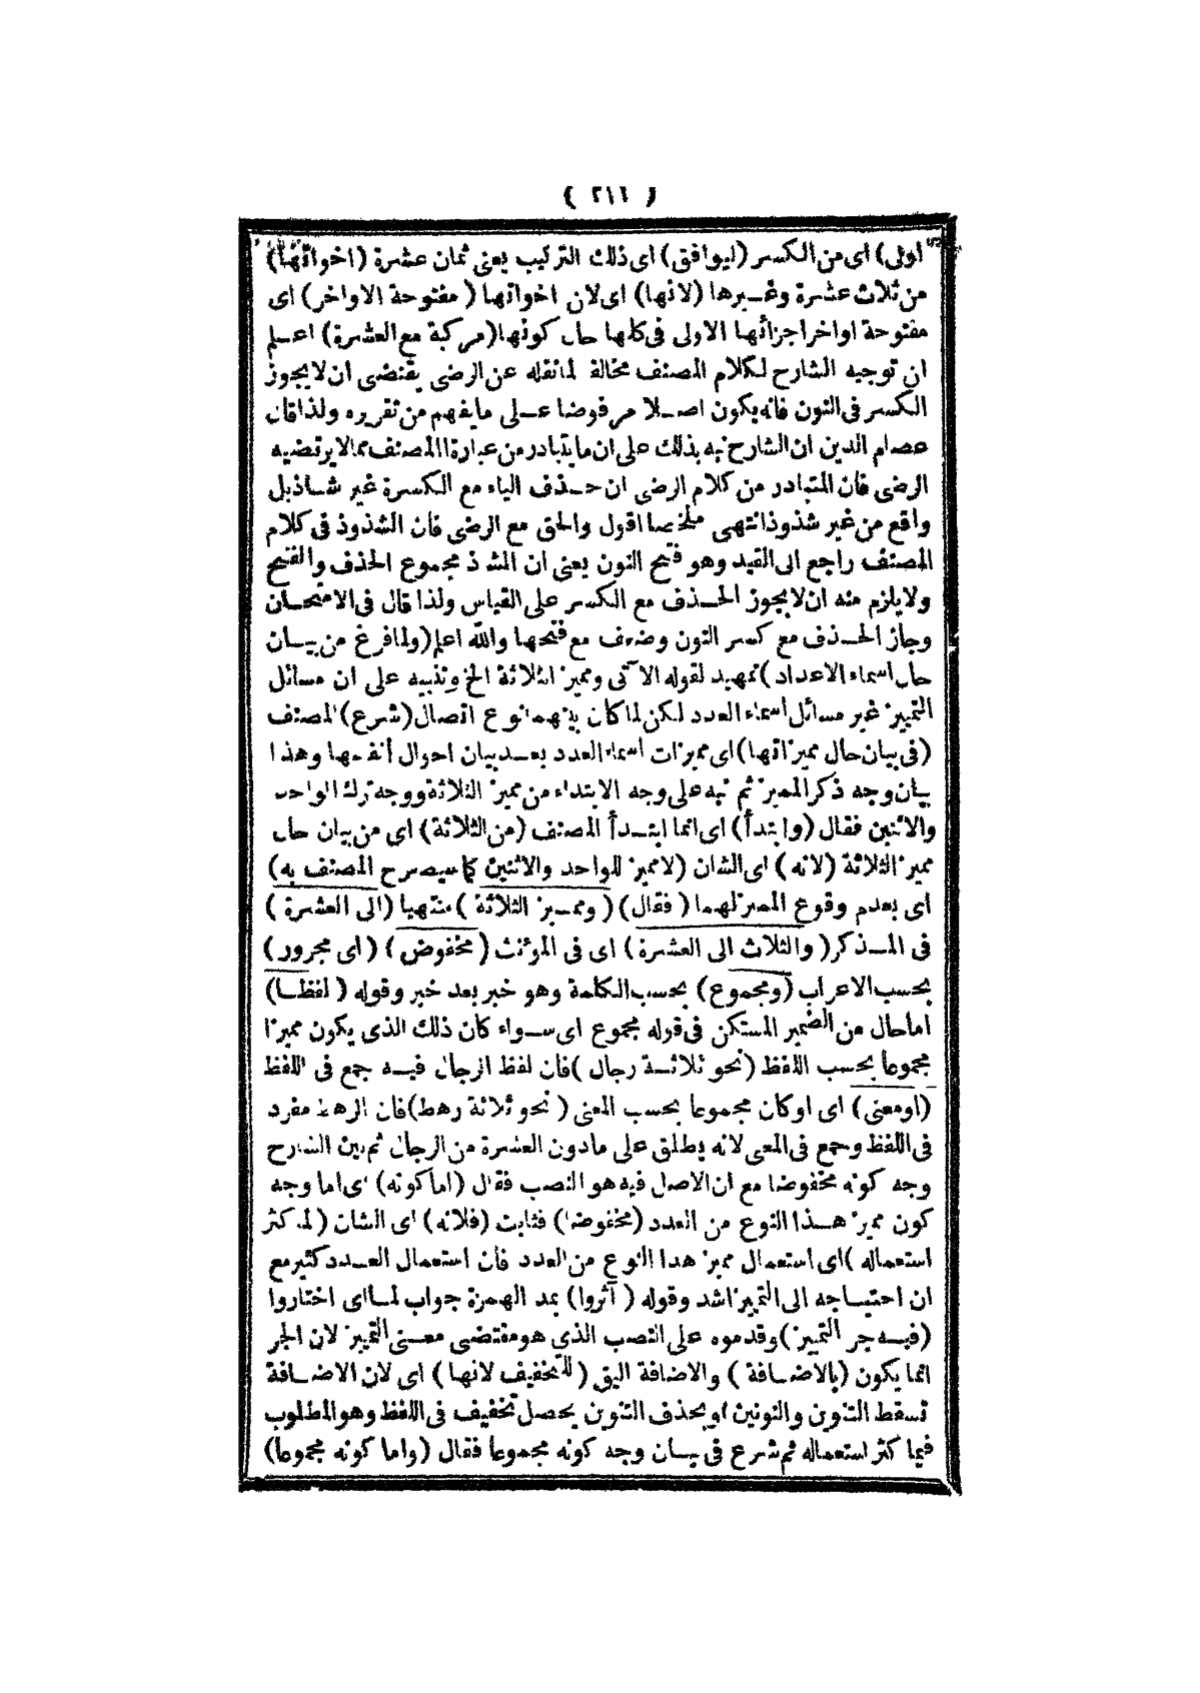 ( ٢١٦ )
اولى) اى من الكسر (ليوافق) اى ذلك التركيب يعنى ثمان عشرة (اخواتها)
من ثلاث عشرة وغيرها (لانها) اى لان اخواتها (مفتوحة الاواخر) اى
مفتوحة اواخر اجزائها الاولى فى كلها حال كونها (مركبة مع العشرة) اعلم
ان توجيه الشارح لكلام المصنف مخالف لما نقله عن الرضى يقتضى ان لا يجوز
الكسر فى النون فانه يكون اصلا مرفوضا على ما يفهم من تقريره ولذا قال
عصام الدين ان الشارح نبه بذلك على ان ما يتبادر من عبارة المصنف مما لا يرتضيه
الرضى فان المتبادر من كلام الرضى ان حذف الياء مع الكسرة غير شاذ بل
واقع من غير شذوذ انتهى ملخصا اقول والحق مع الرضى فان الشذوذ فى كلام
المصنف راجع الى القيد وهو فتح النون يعنى ان المشذ مجموع الحذف والفتح
ولا يلزم منه ان لا يجوز الحذف مع الكسر على القياس ولذا قال فى الامتحان
وجاز الحذف مع كسر النون وضعف مع فتحها والله اعلم (ولما فرغ من بيان
حال اسماء الاعداد) تمهيد لقوله الآتى ومميز الثلاثة الخ وتنبيه على ان مسائل
التمييز غير مسائل اسماء العدد لكن لما كان بينهما نوع اتصال (شرع) المصنف
(فى بيان حال مميزاتها) اى مميزات اسماء العدد بعد بيان احوال أنفسها وهذا
بيان وجه ذكر المميز ثم نبه على وجه الابتداء من مميز الثلاثة ووجه ترك الواحد
والاثنين فقال (وابتدأ) اى انما ابتدأ المصنف (من الثلاثة) اى من بيان حال
مميز الثلاثة (لانه) اى الشان (لا مميز للواحد والاثنين كما سيصرح المصنف به)
اى بعدم وقوع المميز لهما (فقال) (ومميز الثلاثة) منتهيا (الى العشرة)
فى المذكر (والثلاث الى العشرة) اى فى المؤنث (مخفوض) (اى مجرور)
بحسب الاعراب (ومجموع) بحسب الكلمة وهو خبر بعد خبر وقوله (لفظا)
اما حال من الضمير المستكن فى قوله مجموع اى سواء كان ذلك الذى يكون مميزا
مجموعا بحسب اللفظ (نحو ثلاثة رجال) فان لفظ الرجال فيه جمع فى اللفظ
(او معنى) اى او كان مجموعا بحسب المعنى (نحو ثلاثة رهط) فان الرهط مفرد
فى اللفظ وجمع فى المعنى لانه يطلق على ما دون العشرة من الرجال ثم بين الشارح
وجه كونه مخفوضا مع ان الاصل فيه هو النصب فقال (اما كونه) اى اما وجه
كون مميز هذا النوع من العدد (مخفوضا) فثابت (فلانه) اى الشان (لما كثر
استعماله) اى استعمال مميز هذا النوع من العدد فان استعمال العدد كثير مع
ان احتياجه الى التمييز اشد وقوله (آثروا) بمد الهمزة جواب لما اى اختاروا
(فيه جر التمييز) وقدموه على النصب الذى هو مقتضى معنى التمييز لان الجر
انما يكون (بالاضافة) والاضافة اليق (للتخفيف لانها) اى لان الاضافة
تسقط التنوين والنونين او بحذف التنوين يحصل تخفيف فى اللفظ وهو المطلوب
فيما كثر استعماله ثم شرع فى بيان وجه كونه مجموعا فقال (واما كونه مجموعا)